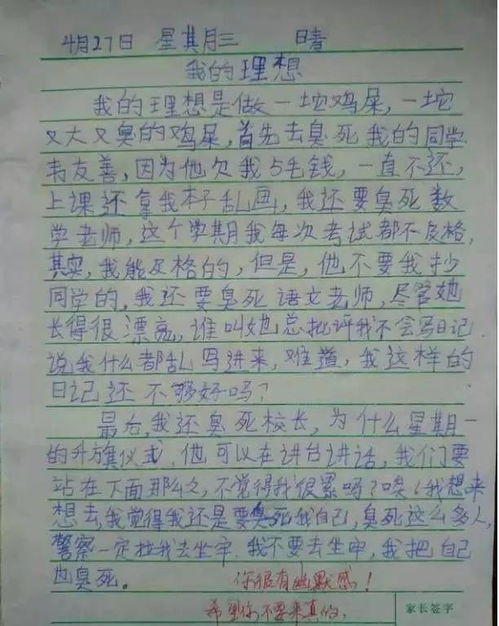 4月27日 星其月三 晴
我的理想
我的理想是做一坨鸡屎，一坨
又大又臭的鸡屎，首先去臭死我的同学
韦友善，因为他欠我5毛钱，一直不还，
上课还拿我本子乱画，我还要臭死数
学老师，这个学期我每次考试都不及格，
其实，我能及格的，但是，他不要我抄
同学的，我还要臭死语文老师，尽管她
长得很漂亮，谁叫她总批评我不会写日记
说我什么都乱写进来，难道，我这样的
日记还不够好吗？
最后，我还臭死校长，为什么星期一
的升旗仪式，他可以在讲台讲话，我们要
站在下面那么久，不觉得我很累吗？唉！我想来
想去，我觉得我还是要臭死我自己，臭死这么多人，
警察一定拉我去坐牢，我不要去坐牢，我把自己
也臭死。
你很有幽默感！
希望你不要来真的。
家长签字